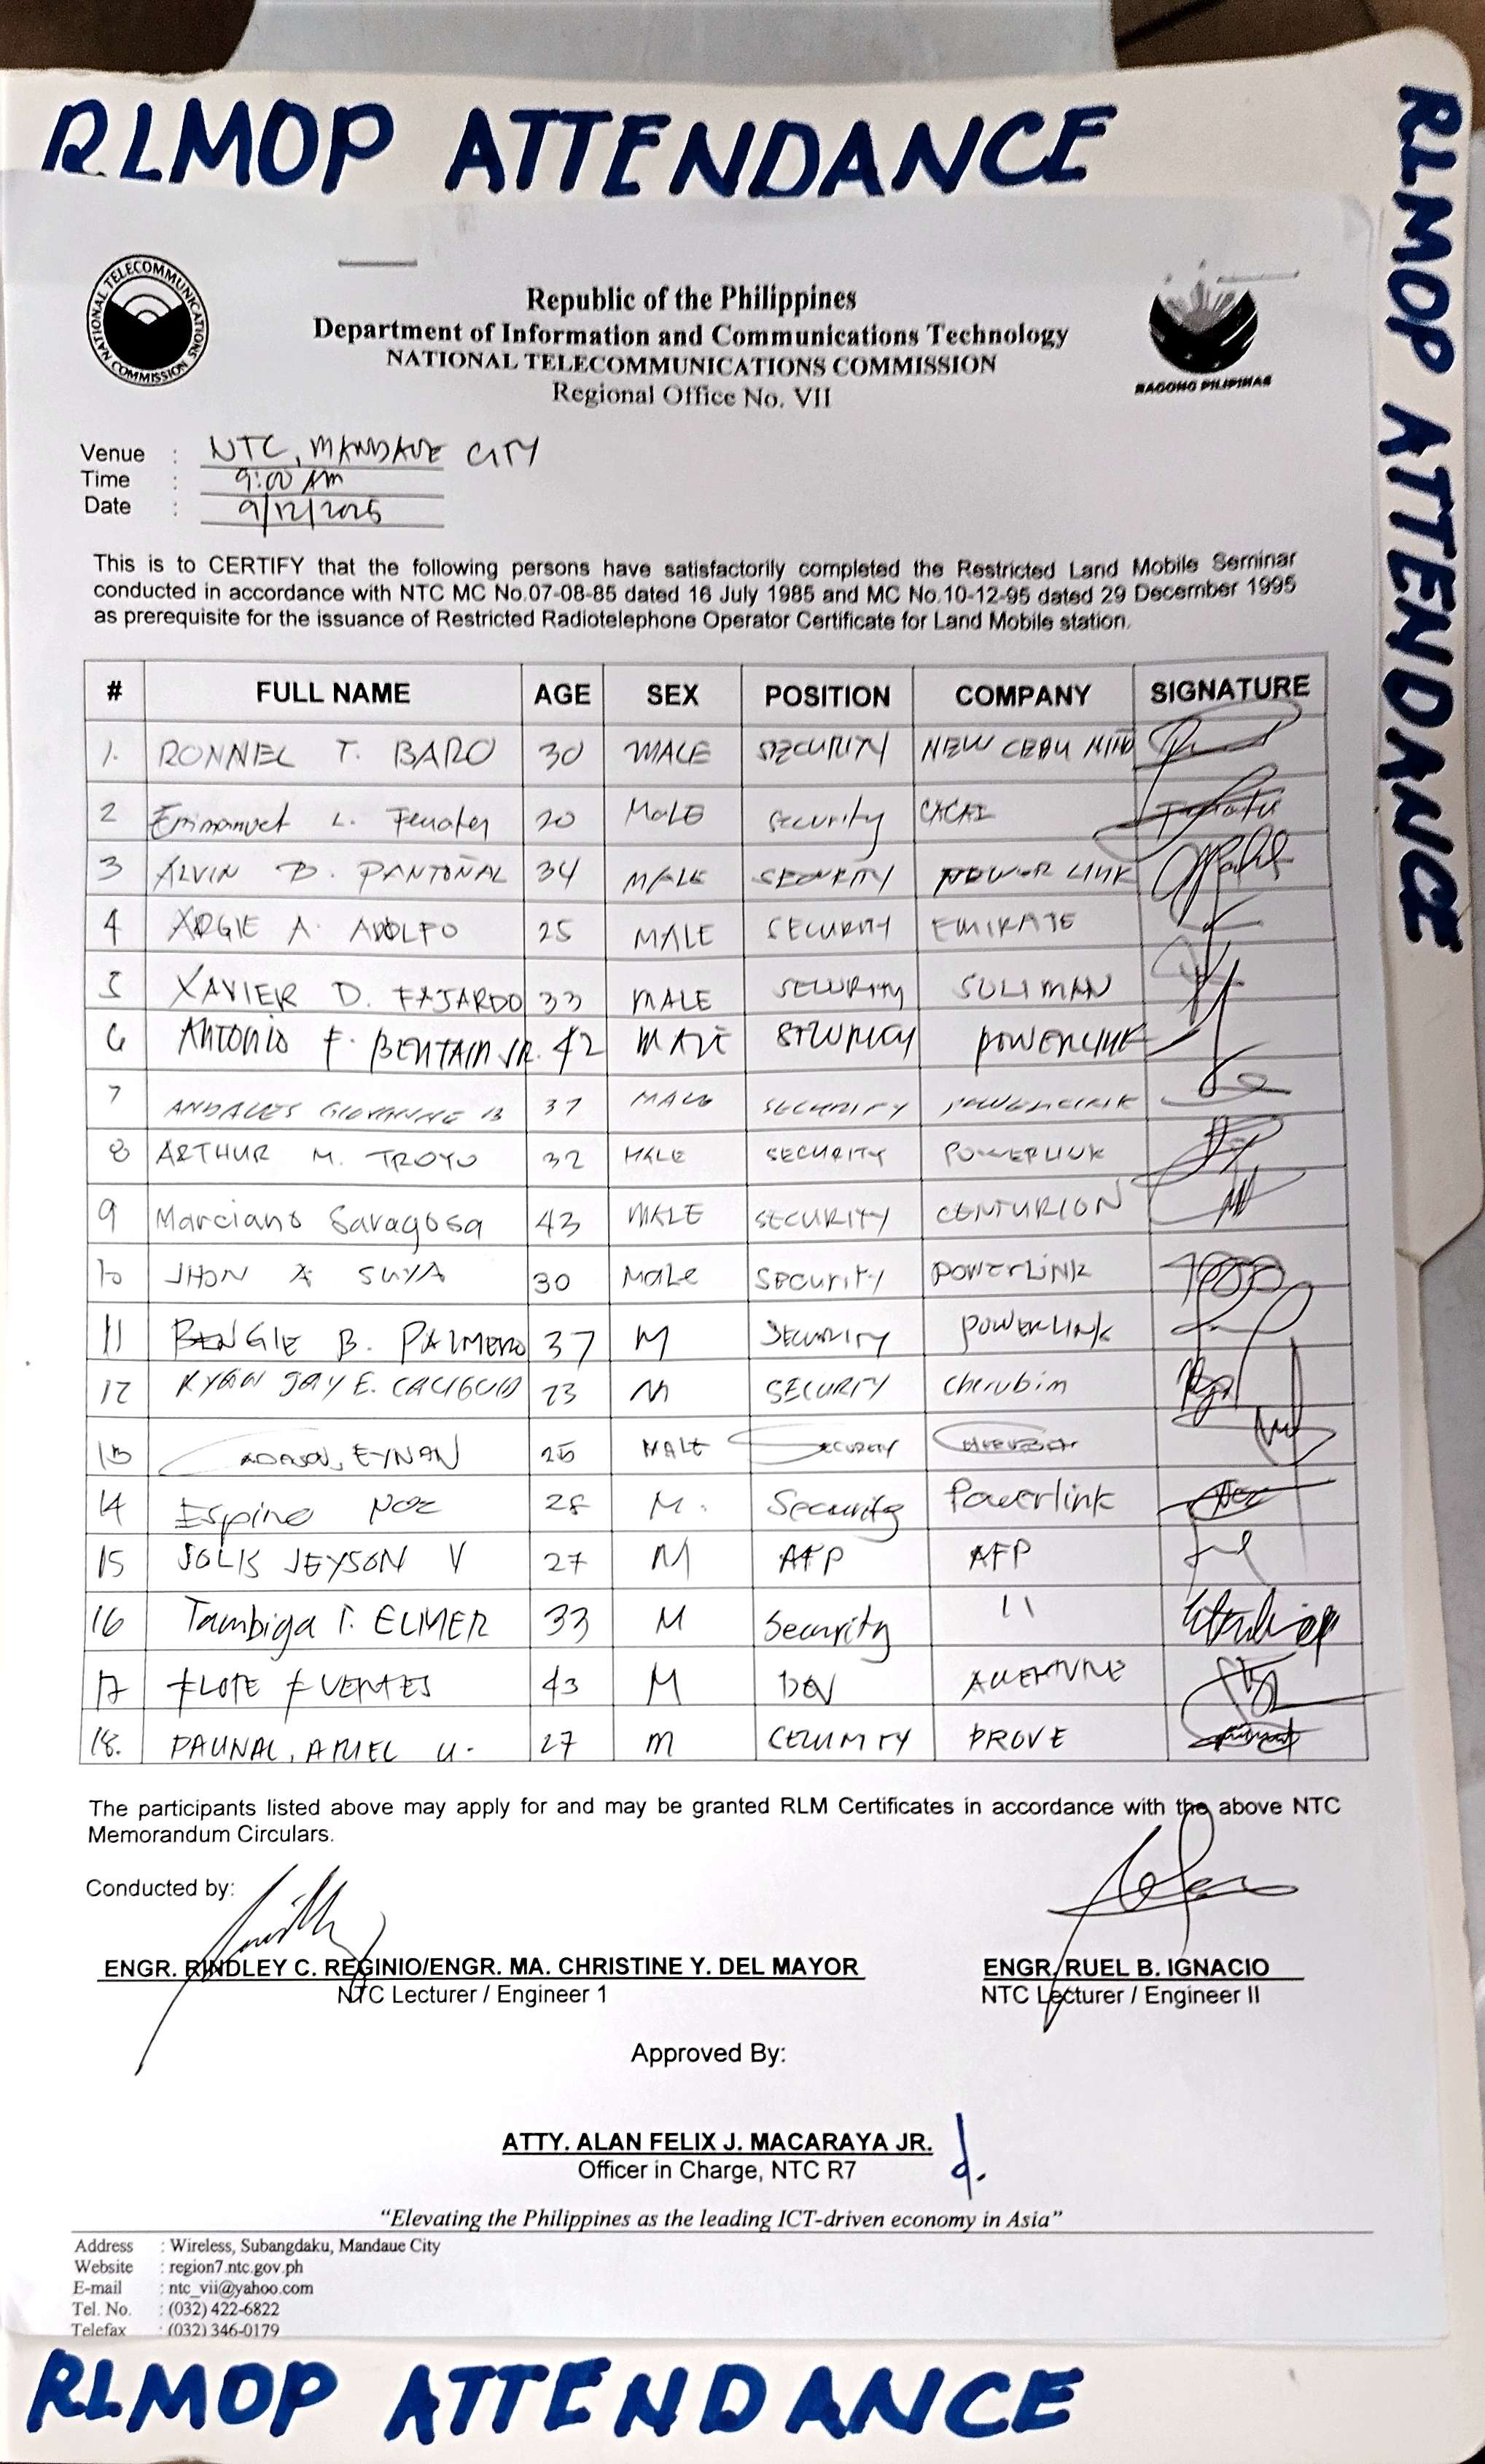 RLMOP ATTENDANCE
RLMOP ATTENDANCE
NATIONAL TELECOMMUNICATIONS COMMISSION
BAGONG PILIPINAS
Republic of the Philippines
Department of Information and Communications Technology
NATIONAL TELECOMMUNICATIONS COMMISSION
Regional Office No. VII
Venue : NTC, MANDAUE CITY
Time : 9:00 AM
Date : 9/12/2025
This is to CERTIFY that the following persons have satisfactorily completed the Restricted Land Mobile Seminar
conducted in accordance with NTC MC No.07-08-85 dated 16 July 1985 and MC No.10-12-95 dated 29 December 1995
as prerequisite for the issuance of Restricted Radiotelephone Operator Certificate for Land Mobile station.
# FULL NAME AGE SEX POSITION COMPANY SIGNATURE
1. RONNEL T. BARO 30 MALE SECURITY NEW CEBU
2 Emmanuel L. 20 MALE Security
3 ALVIN D. PANTOÑAL 34 MALE SECURITY POWER LINK
4 ARGIE A. ADOLFO 25 MALE SECURITY EMIRATE
5 XAVIER D. FAJARDO 33 MALE SECURITY SULIMAN
6 ANTONIO F. BENTAIN JR. 42 MALE SECURITY POWERLINK
7 ANDALES GIOVANNIE B 37 MALE SECURITY POWERLINK
8 ARTHUR M. TROYO 32 MALE SECURITY POWERLINK
9 Marciano Saragosa 43 MALE SECURITY CENTURION
10 JHON SUYA 30 MALE Security POWERLINK
11 BENGIE B. PALMERO 37 M SECURITY POWERLINK
12 RYAN JAY E. 23 M SECURITY Cherubim
13 EYNAN MALE SECURITY
14 Espino NOE 28 M. Security Powerlink
15 SOLIS JEYSON V 27 M AFP AFP
16 Tambiga T. ELMER 33 M Security 11
17 FLOTE FUENTES 43 M
18. PAUNAL, ARIEL U. 27 M CECURITY PROVE
The participants listed above may apply for and may be granted RLM Certificates in accordance with the above NTC
Memorandum Circulars.
Conducted by:
ENGR. RINDLEY C. REGINIO/ENGR. MA. CHRISTINE Y. DEL MAYOR
NTC Lecturer / Engineer 1
ENGR. RUEL B. IGNACIO
NTC Lecturer / Engineer II
Approved By:
ATTY. ALAN FELIX J. MACARAYA JR.
Officer in Charge, NTC R7
“Elevating the Philippines as the leading ICT-driven economy in Asia”
Address : Wireless, Subangdaku, Mandaue City
Website : region7.ntc.gov.ph
E-mail : ntc_vii@yahoo.com
Tel. No. : (032) 422-6822
Telefax : (032) 346-0179
RLMOP ATTENDANCE